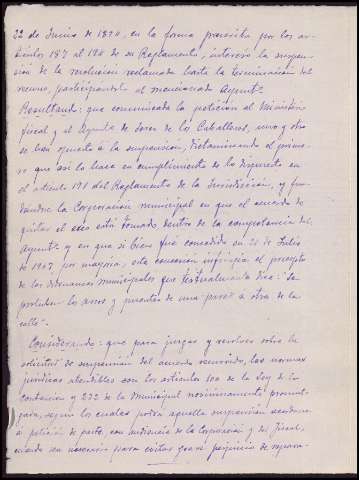 22 de Junio de 1894, en la forma prescrita por los ar-
tículos 187 al 190 de su Reglamento, interesó la suspen-
sion de la resolucion reclamada hasta la terminacion del
recurso, participandose al mencionado Ayuntº
Resultando: que comunicada la peticion al Ministerio
fiscal y al Ayuntº de Seros de los Caballeros, uno y otro
se han opuesto a la suspension, dictaminando el prime-
ro que asi lo hace en cumplimiento de lo dispuesto en
el articulo 191 del Reglamento de la Jurisdiccion, y fun-
dandose la Corporacion municipal en que el acuerdo de
quitar el arco está tomado dentro de la competencia del
Ayuntº y en que si bien fué concedido en 21 de Julio
de 1907 por mayoria, esta concesion infringia el precepto
de las ordenanzas municipales que textualmente dice: "Se
prohiben los arcos y puentes de una pared a otra de la
calle".
Considerando: que para juzgar y resolver sobre la
solicitud de suspension del acuerdo recurrido, las normas
juridicas atendibles son los articulos 100 de la Ley de lo
Contencioso y 272 de la Municipal novisimamente promul-
gada, segun los cuales podrá aquella suspension acordarse
a peticion de parte, con audiencia de la Corporacion y del Fiscal,
cuando sea necesario para evitar grave perjuicio de repara-